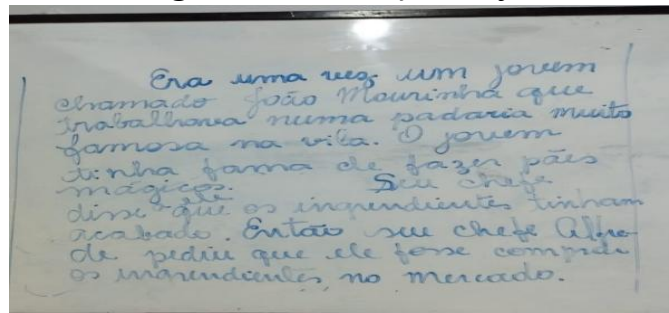 Era uma vez um jovem
chamado João Mourinha que
trabalhava numa padaria muito
famosa na vila. O jovem
tinha fama de fazer pães
mágicos. Seu chefe
disse que os ingrendientes tinham
acabado. Então seu chefe
de pediu que ele fosse comprar
os ingrendientes, no mercado.